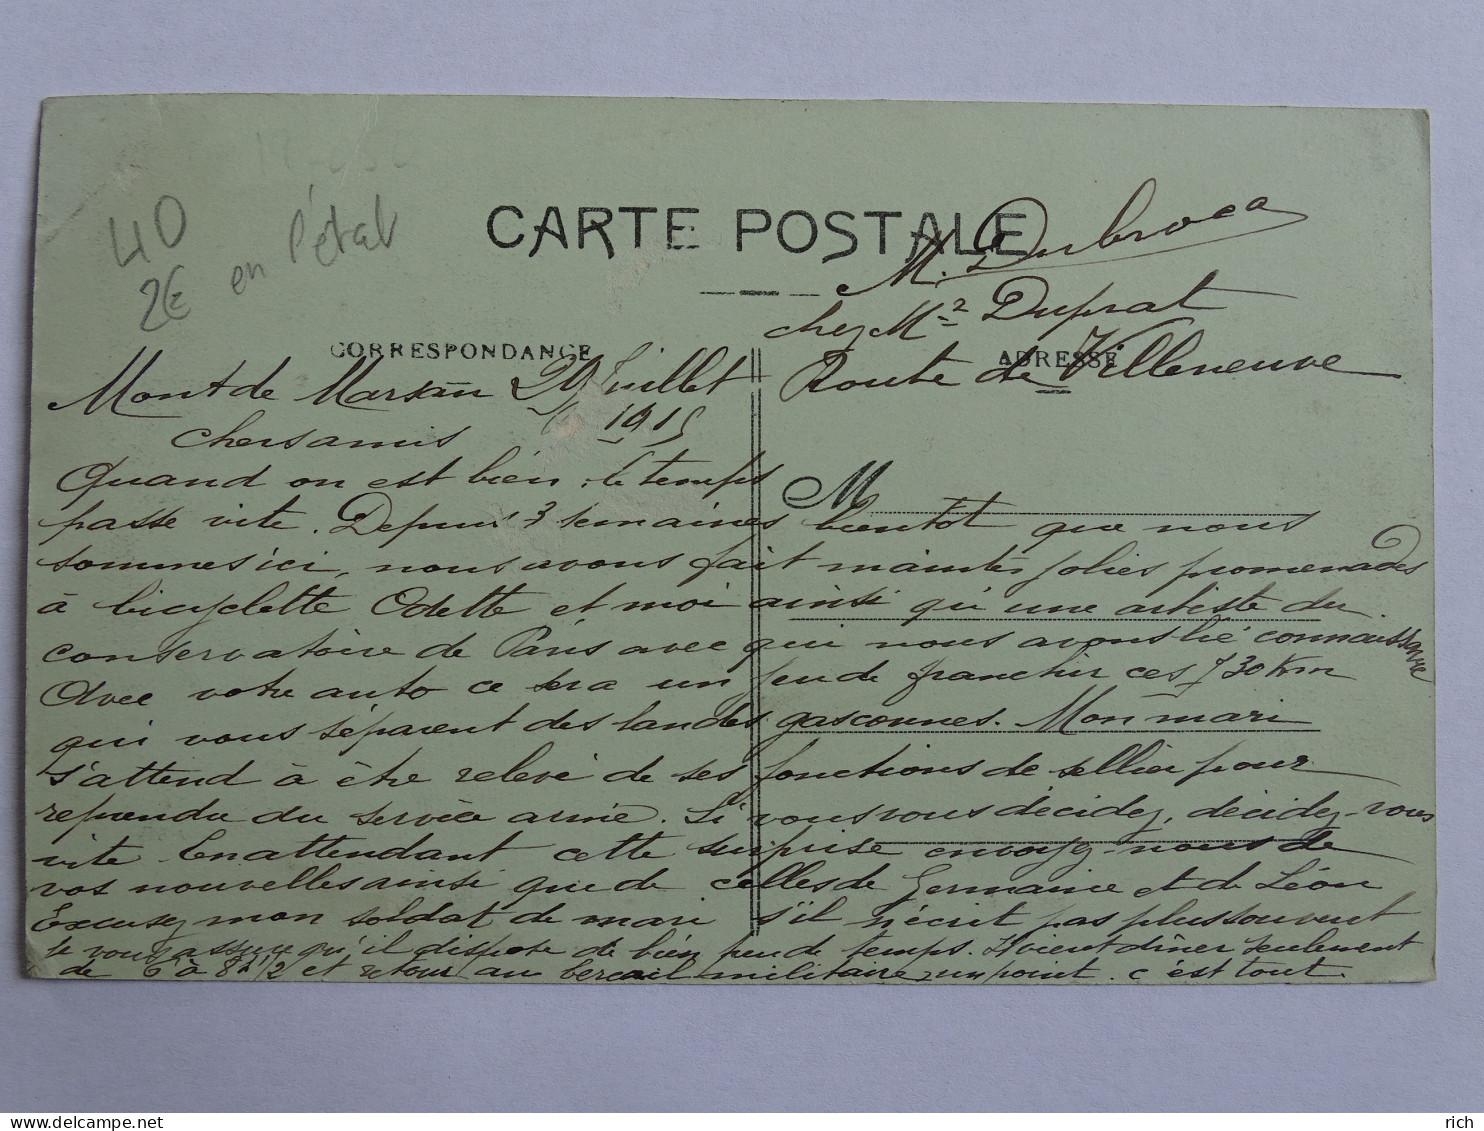 40
2€ en l'étal
CARTE POSTALE
M. Dubroca
chez Me Duprat
Route de Villeneuve
CORRESPONDANCE
ADRESSE
Mont de Marsan 29 Juillet
1915
Chers amis
M
Quand on est bien, le temps
passe vite. Depuis 3 semaines bientôt que nous
sommes ici, nous avons fait maintes jolies promenades
à bicyclette Odette et moi ainsi qu'une artiste du
conservatoire de Paris avec qui nous avons lié connaissance
Avec votre auto ce sera un jeu de franchir ces 730 Km
qui vous séparent des landes gasconnes. Mon mari
s'attend à être relevé de ses fonctions de sellier pour
reprendre du service armé. Si vous vous décidez, décidez-vous
vite. En attendant cette surprise envoyez-nous de
vos nouvelles ainsi que de celles de Germaine et de Léon
Excusez mon soldat de mari s'il n'écrit pas plus souvent
Je vous assure qu'il dispose de bien peu de temps. Il vient dîner seulement
de 6 à 8h 1/2 et retour au bercail militaire, un point. c'est tout.
rich